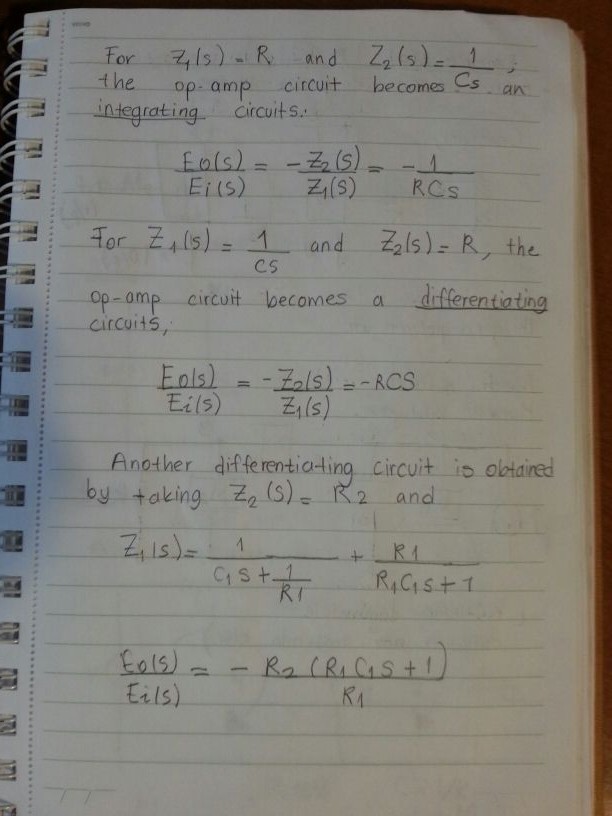 For Z₁(s) = R and Z₂(s) = 1/Cs ;
the op-amp circuit becomes an
integrating circuits.
Eo(s)/Ei(s) = -Z₂(s)/Z₁(s) = -1/RCs
For Z₁(s) = 1/cs and Z₂(s) = R, the
op-amp circuit becomes a differentiating
circuits,
Eo(s)/Ei(s) = -Z₂(s)/Z₁(s) = -RCS
Another differentiating circuit is obtained
by taking Z₂(s) = R2 and
Z₁(s) = 1/(C₁s + 1/R1) + R1/(R₁C₁s + 1)
Eo(s)/Ei(s) = - R₂(R₁C₁s + 1)/R₁